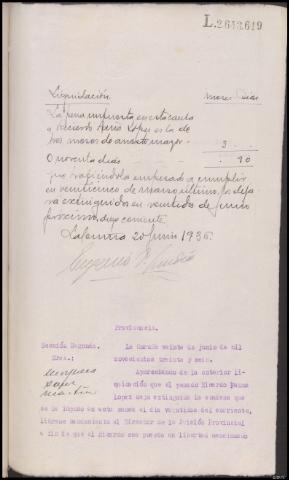 L.2643619
Liquidación Meses Dias
La pena impuesta en esta causa
a Ricardo Lopez es la de
tres meses de arresto mayor 3
O noventa dias 90
que habiéndola empezado a cumplir
en veinticinco de marzo último, la deja-
ra extinguida en veintidos de junio
proximo, digo corriente.
La Coruña 20 Junio 1936.
Providencia.
Sección Segunda. La Coruña veinte de junio de mil
Sres.: novecientos treinta y seis.
Apareciendo de la anterior li-
quidación que el penado Ricardo
Lopez deja extinguida la condena que
se le impuso en esta causa el dia veintidos del corriente,
librese mandamiento al Director de la Prisión Provincial
a fin de que el Ricardo sea puesto en libertad mencionado